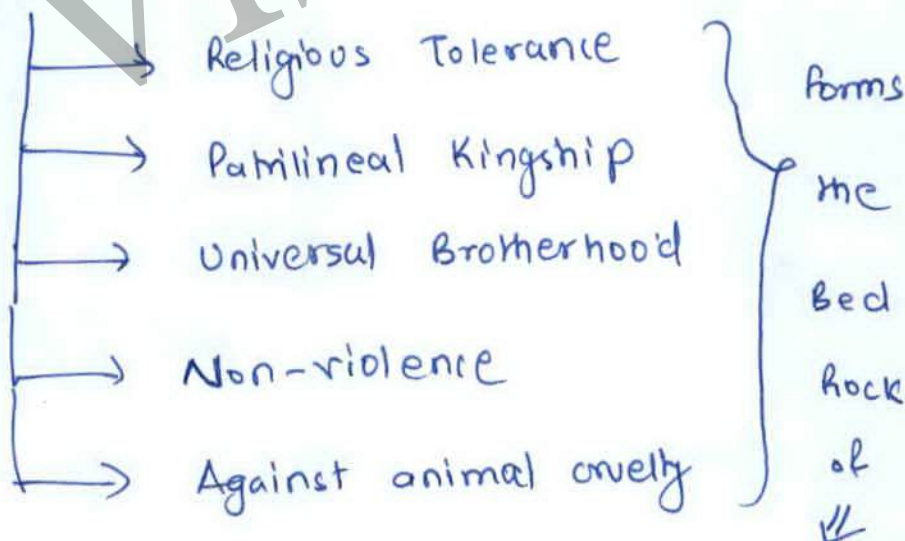 Religious Tolerance
Patrilineal Kingship
Universal Brotherhood
Non-violence
Against animal cruelty
forms
the
Bed
Rock
of